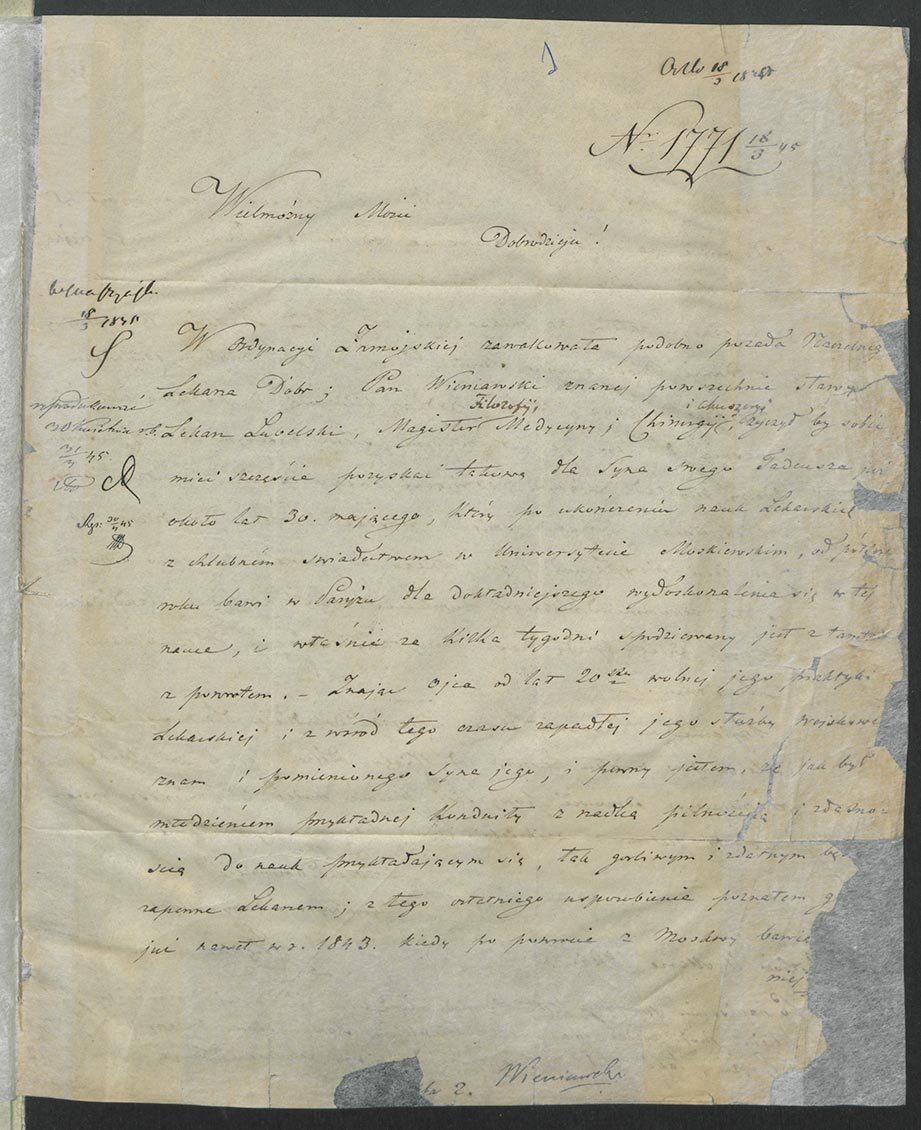 18/3 1845
Nr. 1771 18/3 45
Wielmożny Mości
Dobrodzieju!
18/3 1845
W Ordynacyi Zamojskiej zawakowała podobno posada Naczelnego
Lekarza Dóbr; Pan Wieniawski znanej powszechnie sławy
Filozofii, i Akuszeryi
Lekarz Lubelski, Magister Medycyny i Chirurgii, życzył by sobie
30
45
mieć szczęście pozyskać takową dla Syna swego Tadeusza już
około lat 30. mającego, który po ukończeniu nauk Lekarskich
30/4 45
z chlubném świadectwem w Uniwersytecie Moskiewskim, od
roku bawi w Paryżu dla dokładniejszego wydoskonalenia się w tej
nauce, i właśnie za kilka tygodni spodziewany jest z
z powrotem. – Znając Ojca od lat 20 wolnej jego praktyki
Lekarskiej i z wśród tego czasu zapadłej jego służby
znam i pomienionego Syna jego, i pewny jestem, że jak był
młodzieńcem przykładnej Konduity z rzadką pilnością i zdatno-
ścią do nauk przykładającym się, tak gorliwym i zdatnym
zapewne Lekarzem; z tego ostatniego usposobienia poznałem
już nawet w r. 1843. kiedy po powrocie z Moskwy
2. Wieniawski